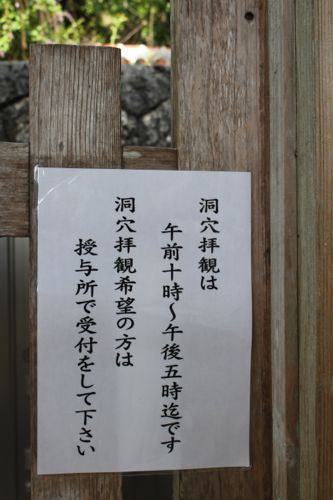 洞穴拝観は
午前十時～午後五時迄です
洞穴拝観希望の方は
授与所で受付をして下さい